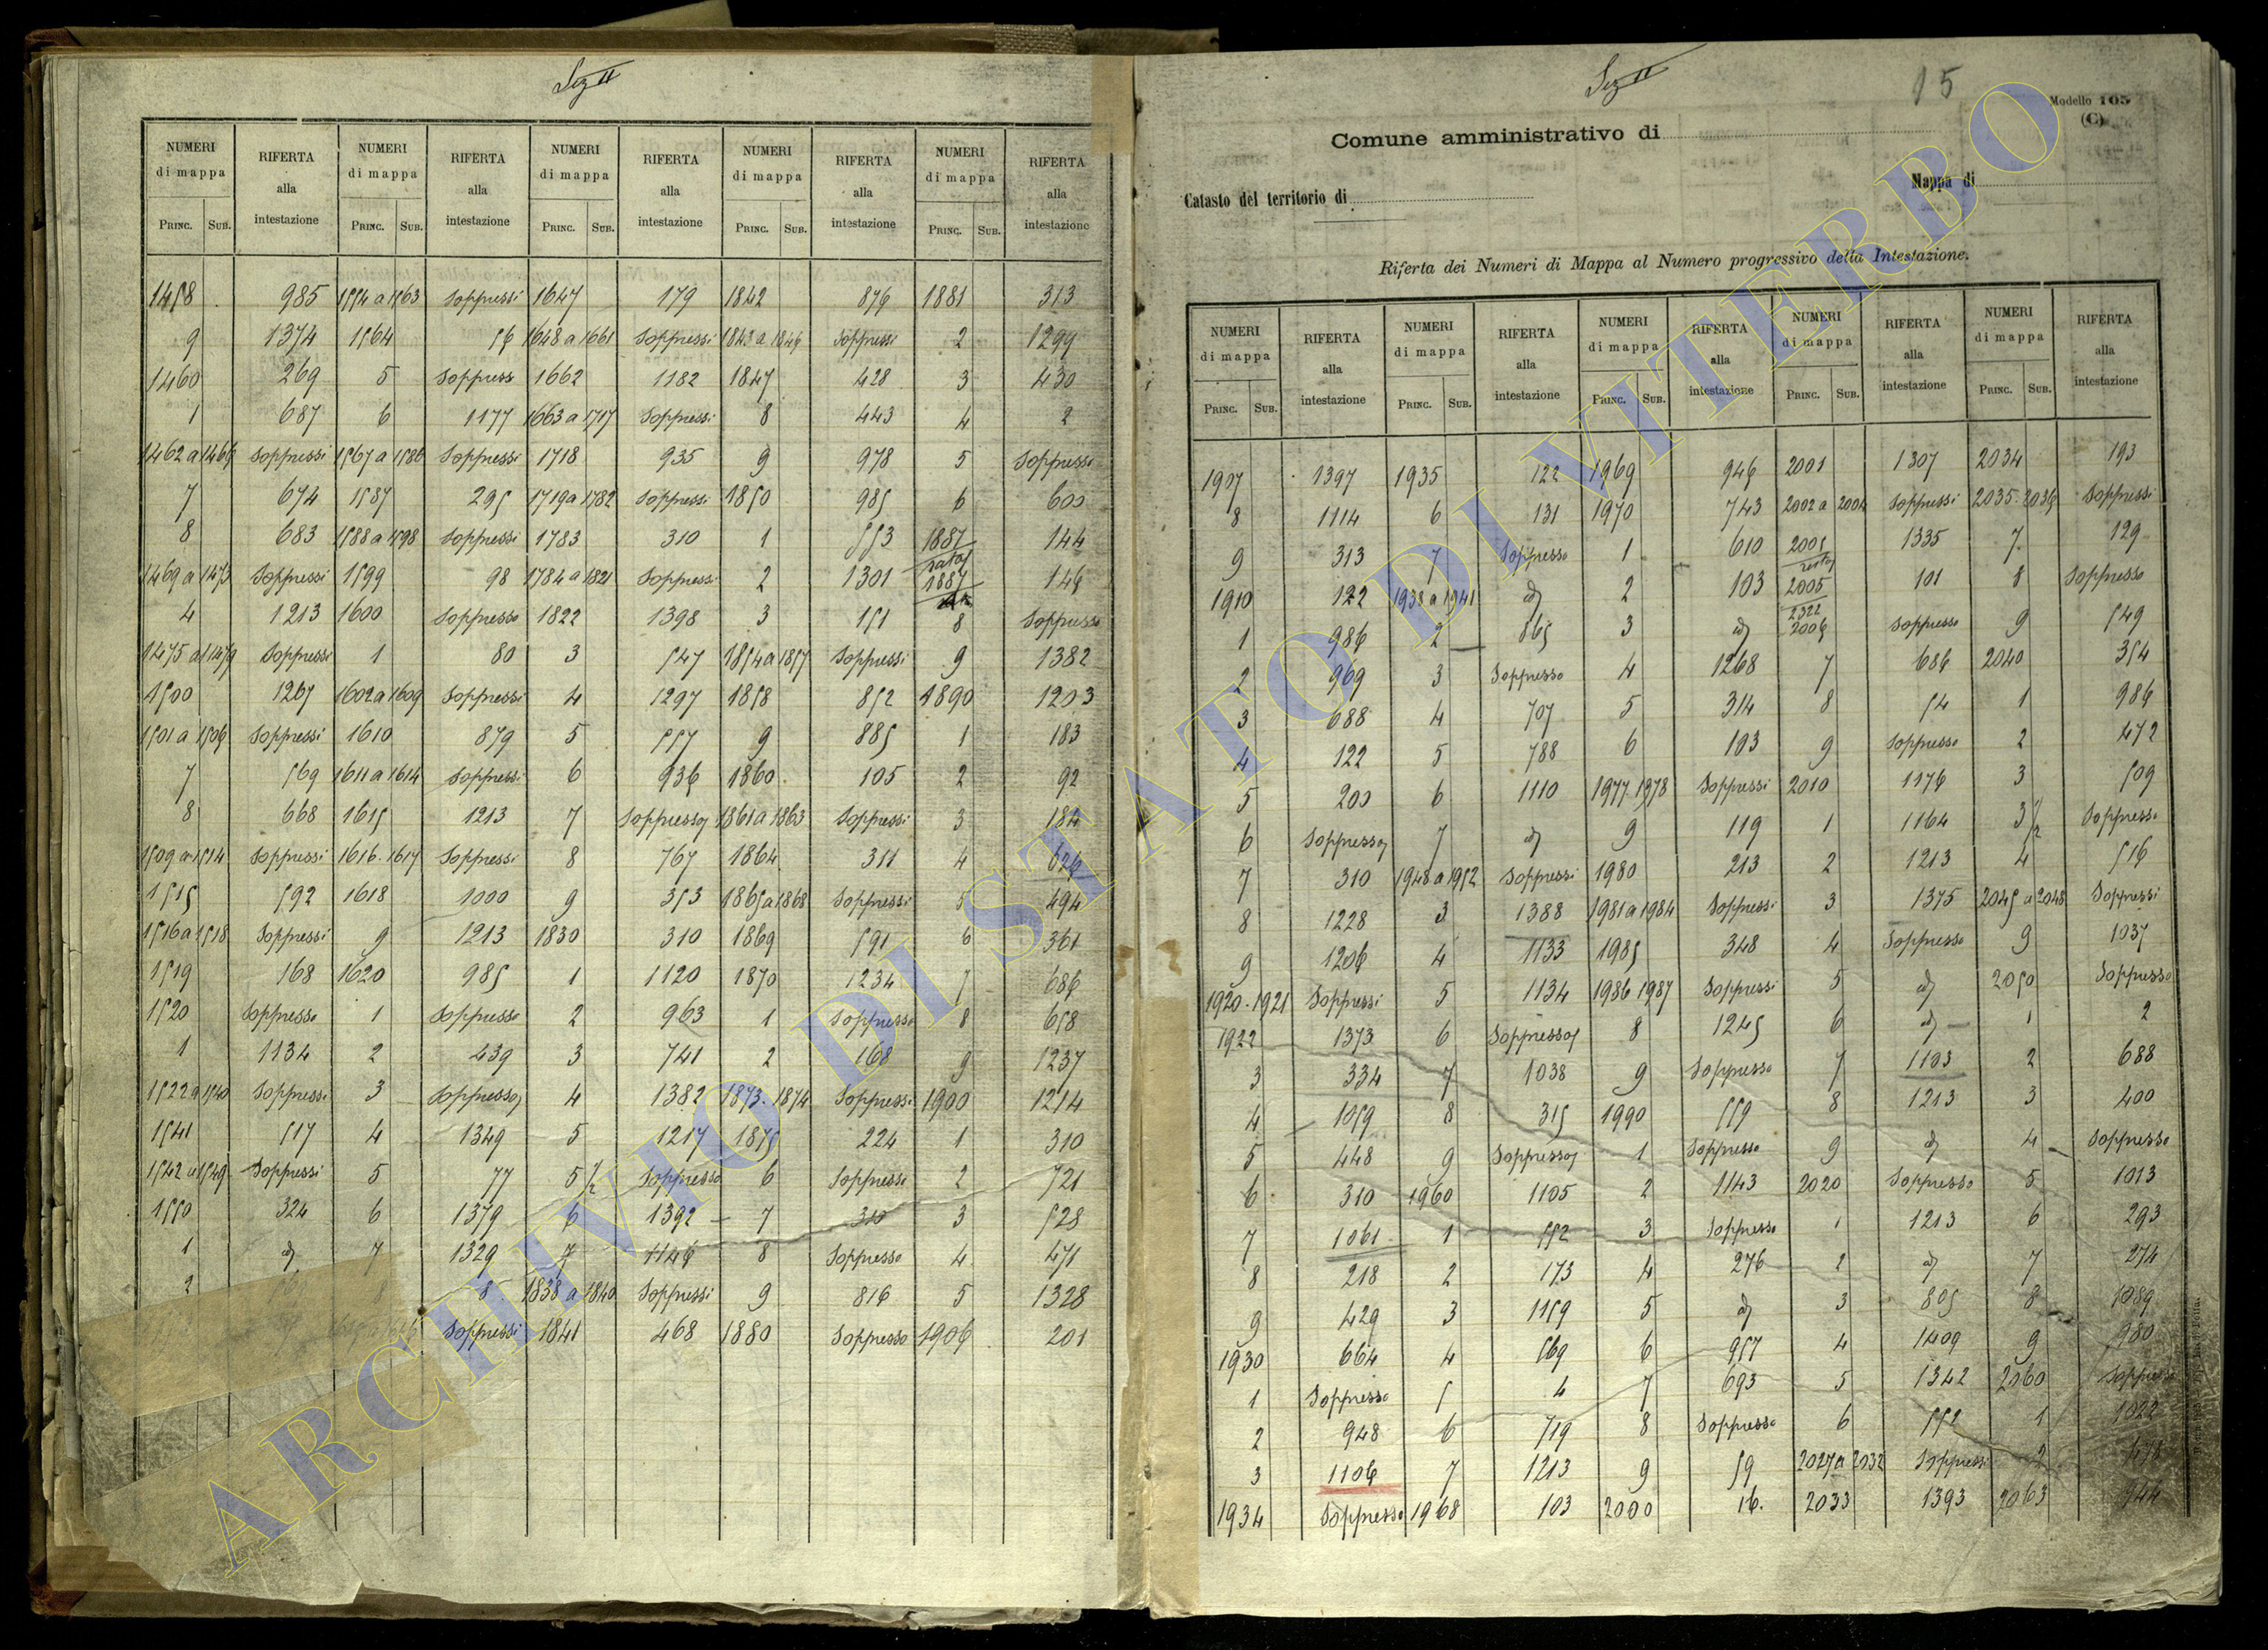 Sez II
NUMERI di mappa RIFERTA alla intestazione NUMERI di mappa RIFERTA alla intestazione NUMERI di mappa RIFERTA alla intestazione NUMERI di mappa RIFERTA alla intestazione NUMERI di mappa RIFERTA alla intestazione
PRINC. SUB. PRINC. SUB. PRINC. SUB. PRINC. SUB. PRINC. SUB.
1458 985 1554 a 1563 Soppressi 1647 179 1842 876 1881 313
9 1374 1564 56 1648 a 1661 Soppressi 1843 a 1846 Soppressi 2 1299
1460 269 5 Soppress 1662 1182 1847 428 3 430
1 687 6 1177 1663 a 1717 Soppressi 8 443 4 2
1462 a 1466 Soppressi 1567 a 1586 Soppressi 1718 935 9 978 5 Soppresso
7 674 1587 295 1719 a 1782 Soppressi 1850 985 6 600
8 683 1588 a 1598 Soppressi 1783 310 1 553 1887 144
1469 a 1473 Soppressi 1599 98 1784 a 1821 Soppressi 2 1301 1887 146
4 1213 1600 Soppresso 1822 1398 3 151 8 Soppresso
1475 a 1479 Soppressi 1 80 3 547 1854 a 1857 Soppressi 9 1382
1500 1267 1602 a 1609 Soppressi 4 1297 1858 852 1890 1203
1501 a 1506 Soppressi 1610 879 5 557 9 885 1 183
7 569 1611 a 1614 Soppressi 6 936 1860 105 2 92
8 668 1615 1213 7 Soppresso 1861 a 1863 Soppressi 3 184
1509 a 1514 Soppressi 1616 . 1617 Soppressi 8 767 1864 311 4 626
1515 592 1618 1000 9 353 1865 a 1868 Soppressi 5 494
1516 a 1518 Soppressi 9 1213 1830 310 1869 591 6 361
1519 168 1620 985 1 1120 1870 1234 7 686
1520 Soppresso 1 Soppresso 2 963 1 Soppresso 8 658
1 1134 2 439 3 741 2 168 9 1237
1522 a 1540 Soppressi 3 Soppresso 4 1382 1873 . 1874 Soppressi 1900 1214
1541 517 4 1349 5 1217 1875 224 1 310
1542 a 1549 Soppressi 5 77 5 1/2 Soppresso 6 Soppresso 2 721
1550 324 6 1379 6 1392 7 310 3 528
1 d 7 1329 7 1146 8 Soppresso 4 471
2 8 1838 a 1840 Soppressi 9 816 5 1328
Soppressi 1841 468 1880 Soppresso 1906 201
Sez II
15
Modello 105
(C)
Comune amministrativo di
Catasto del territorio di
Mappa di
Riferta dei Numeri di Mappa al Numero progressivo della Intestazione.
NUMERI di mappa RIFERTA alla intestazione NUMERI di mappa RIFERTA alla intestazione NUMERI di mappa RIFERTA alla intestazione NUMERI di mappa RIFERTA alla intestazione NUMERI di mappa RIFERTA alla intestazione
PRINC. SUB. PRINC. SUB. PRINC. SUB. PRINC. SUB. PRINC. SUB.
1907 1397 1935 122 1969 946 2001 1307 2034 193
8 1114 6 131 1970 743 2002 a 2004 Soppressi 2035 . 2036 Soppressi
9 313 7 Soppresso 1 610 2005 resto 1335 7 129
1910 122 1938 a 1941 d 2 103 2005 2322 101 8 Soppresso
1 986 2 865 3 d 2006 Soppresso 9 549
2 969 3 Soppresso 4 1268 7 686 2040 354
3 688 4 707 5 314 8 54 1 986
4 122 5 788 6 103 9 Soppresso 2 472
5 200 6 1110 1977 . 1978 Soppressi 2010 1176 3 509
6 Soppresso 7 d 9 119 1 1164 3 1/2 Soppresso
7 310 1948 a 1952 Soppressi 1980 213 2 1213 4 516
8 1228 3 1388 1981 a 1984 Soppressi 3 1375 2045 a 2048 Soppressi
9 1206 4 1133 1985 348 4 Soppresso 9 1037
1920 . 1921 Soppressi 5 1134 1986 1987 Soppressi 5 d 2050 Soppresso
1922 1373 6 Soppresso 8 1245 6 d 1 2
3 334 7 1038 9 Soppresso 7 1103 2 688
4 1059 8 315 1990 559 8 1213 3 400
5 448 9 Soppresso 1 Soppresso 9 d 4 Soppresso
6 310 1960 1105 2 1143 2020 Soppresso 5 1013
7 1061 1 552 3 Soppresso 1 1213 6 293
8 218 2 173 4 276 2 d 7 274
9 429 3 1159 5 d 3 805 8 1089
1930 664 4 569 6 957 4 1409 9 980
1 Soppresso 5 4 7 693 5 1342 2060 Soppresso
2 948 6 719 8 Soppresso 6 552 1 1022
3 1106 7 1213 9 59 2027 a 2032 Soppressi 2 478
1934 Soppresso 1968 103 2000 16. 2033 1393 2063 744
ARCHIVIO DI STATO DI VITERBO